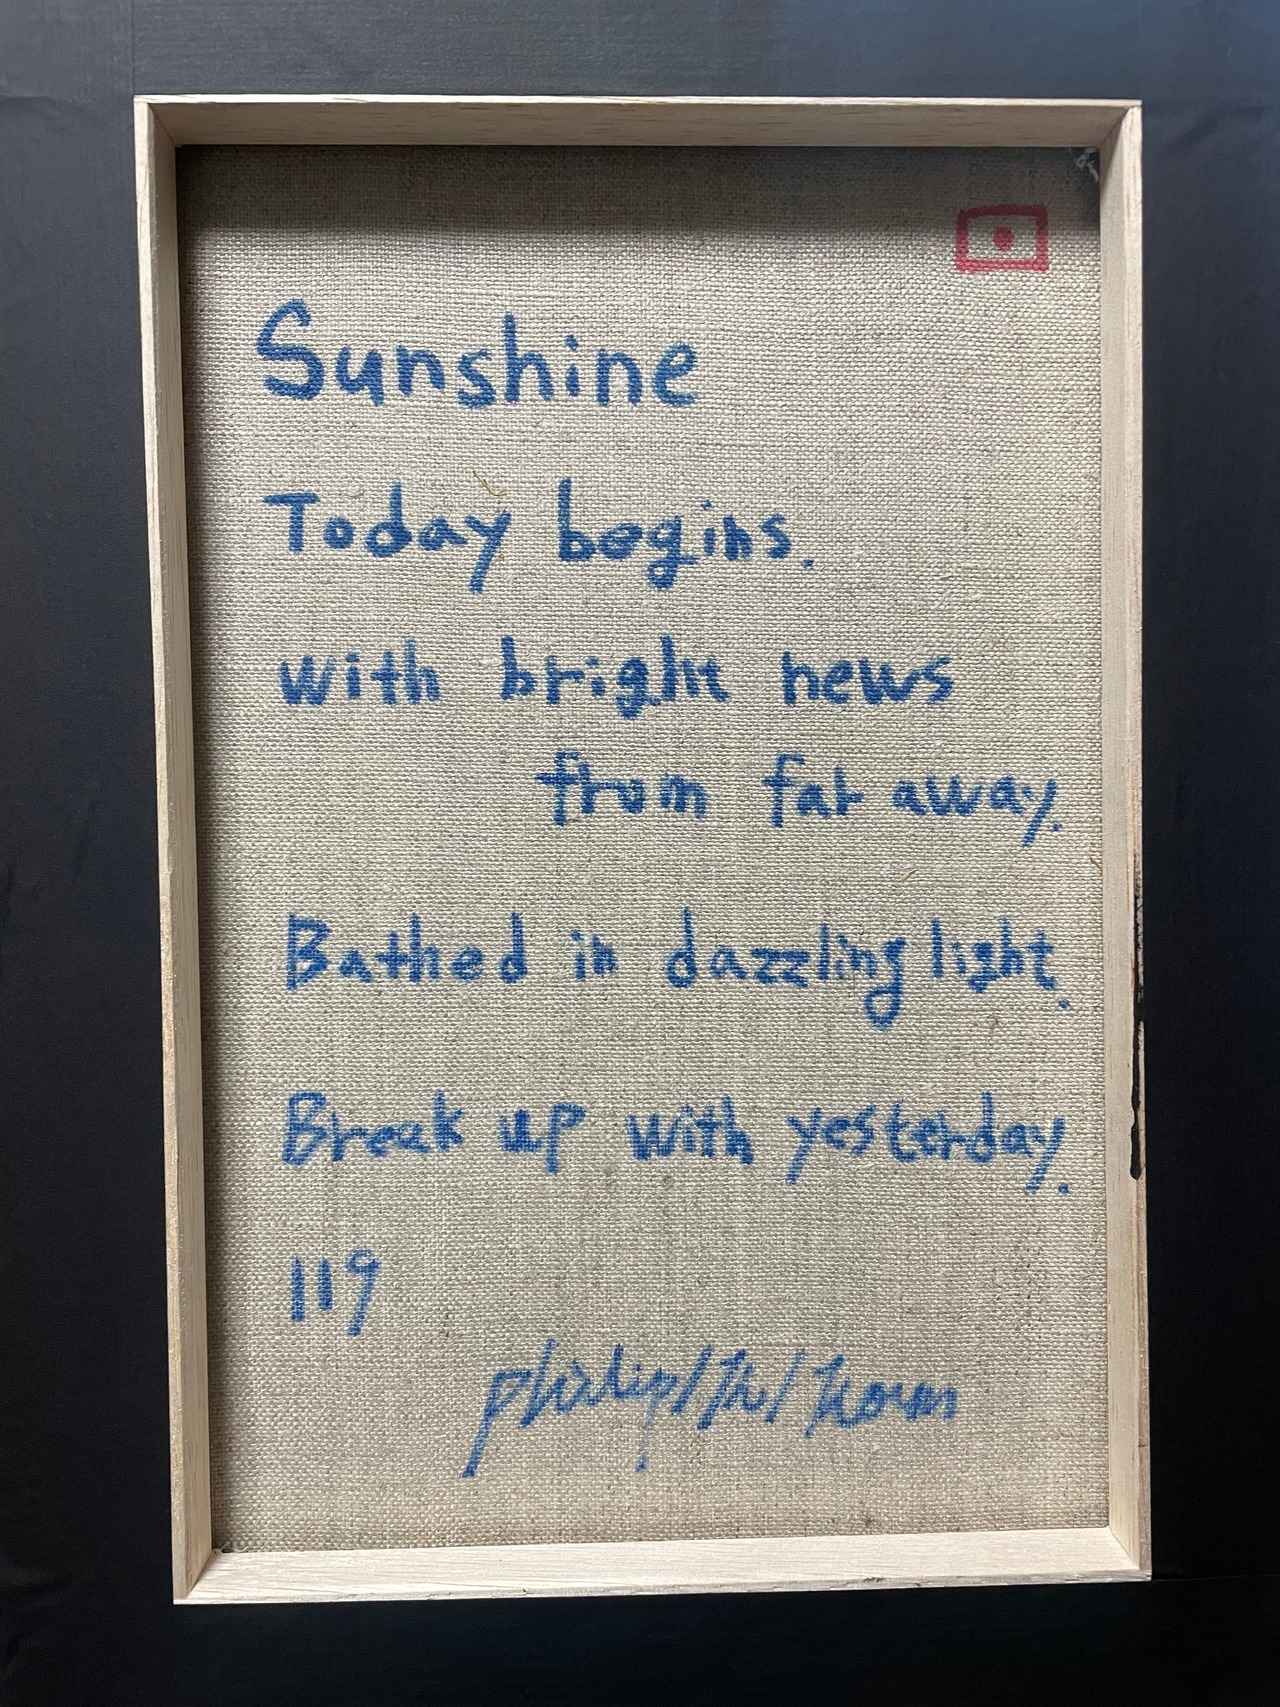 Sunshine
Today begins.
with bright news
from far away.
Bathed in dazzling light.
Break up with yesterday.
119